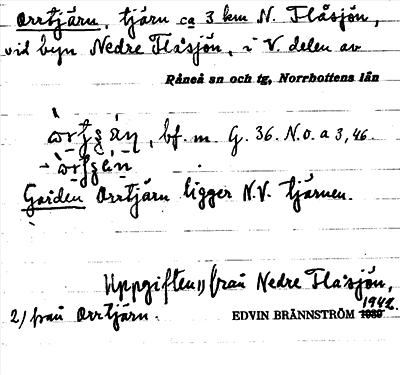 Orrtjärn, tjärn ca 3 km N. Flåsjön,
vid byn Nedre Flåsjön, i V. delen av
Råneå sn och tg, Norrbottens län
, bf. m. G. 36. N.o. a 3, 46.
Gården Orrtjärn ligger N.V. tjärnen.
Uppgiften 1) från Nedre Flåsjön,
2) från Orrtjärn.
EDVIN BRÄNNSTRÖM 1939 1942.